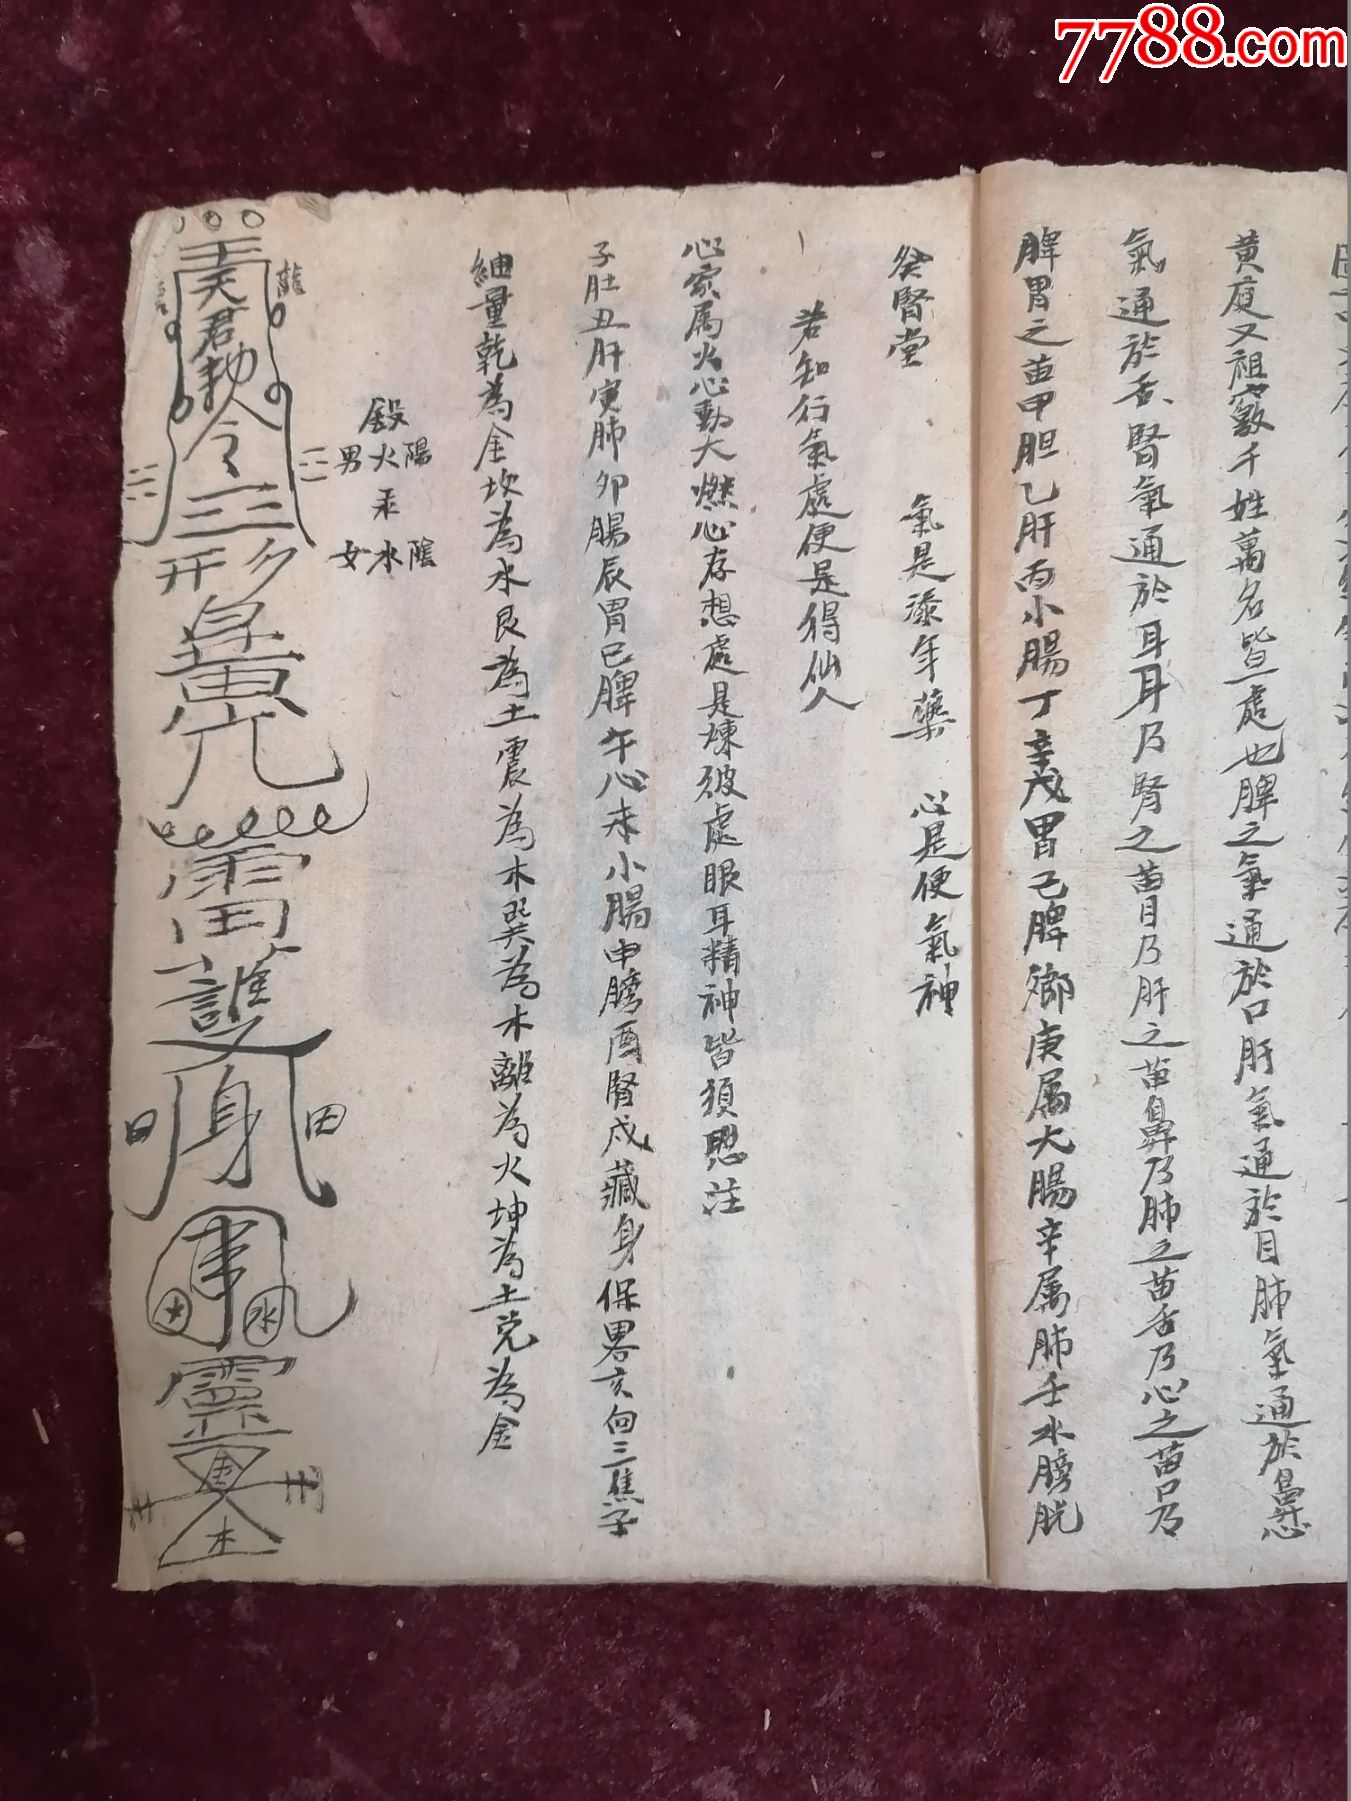 7788.com
黄庭又祖竅千姓萬名皆豆處也脾之氣通於口肝氣通於目肺氣通於鼻心
氣通於舌腎氣通於耳耳乃腎之苗目乃肝之苗鼻乃肺之苗舌乃心之苗口乃
脾胃之苗甲胆乙肝丙小腸丁戊胃己脾鄉庚属大腸辛属肺壬水膀胱
癸腎堂 氣是添年藥 心是便氣神
若知行氣處便是得仙人
心家属火心動大燃心存想處是煉彼處眼耳精神皆須照注
子肚丑肝寅肺卯腸辰胃巳脾午心未小腸申膀酉腎戌藏身保畧亥向三焦子
細量乾為金坎為水艮為土震為木巽為木離為火坤為土兑為金
男火陽
女水陰
君勅令
護
身
日
田
火
水
靈
金
木